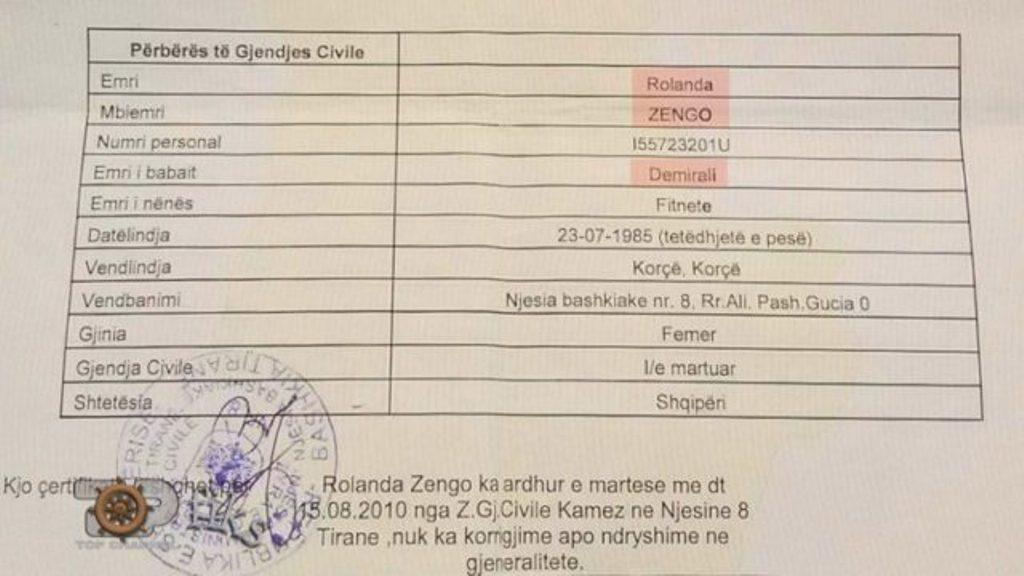 Përbërës të Gjendjes Civile
Emri Rolanda
Mbiemri ZENGO
Numri personal I55723201U
Emri i babait Demirali
Emri i nënës Fitnete
Datëlindja 23-07-1985 (tetëdhjetë e pesë)
Vendlindja Korçë, Korçë
Vendbanimi Njesia bashkiake nr. 8, Rr.Ali. Pash.Gucia 0
Gjinia Femer
Gjendja Civile I/e martuar
Shtetësia Shqipëri
Kjo Rolanda Zengo ka ardhur e martese me dt
15.08.2010 nga Z.Gj.Civile Kamez ne Njesine 8
Tirane ,nuk ka korrigjime apo ndryshime ne
gjeneralitete.
BASHKIA TIRANE
TOP CHANNEL